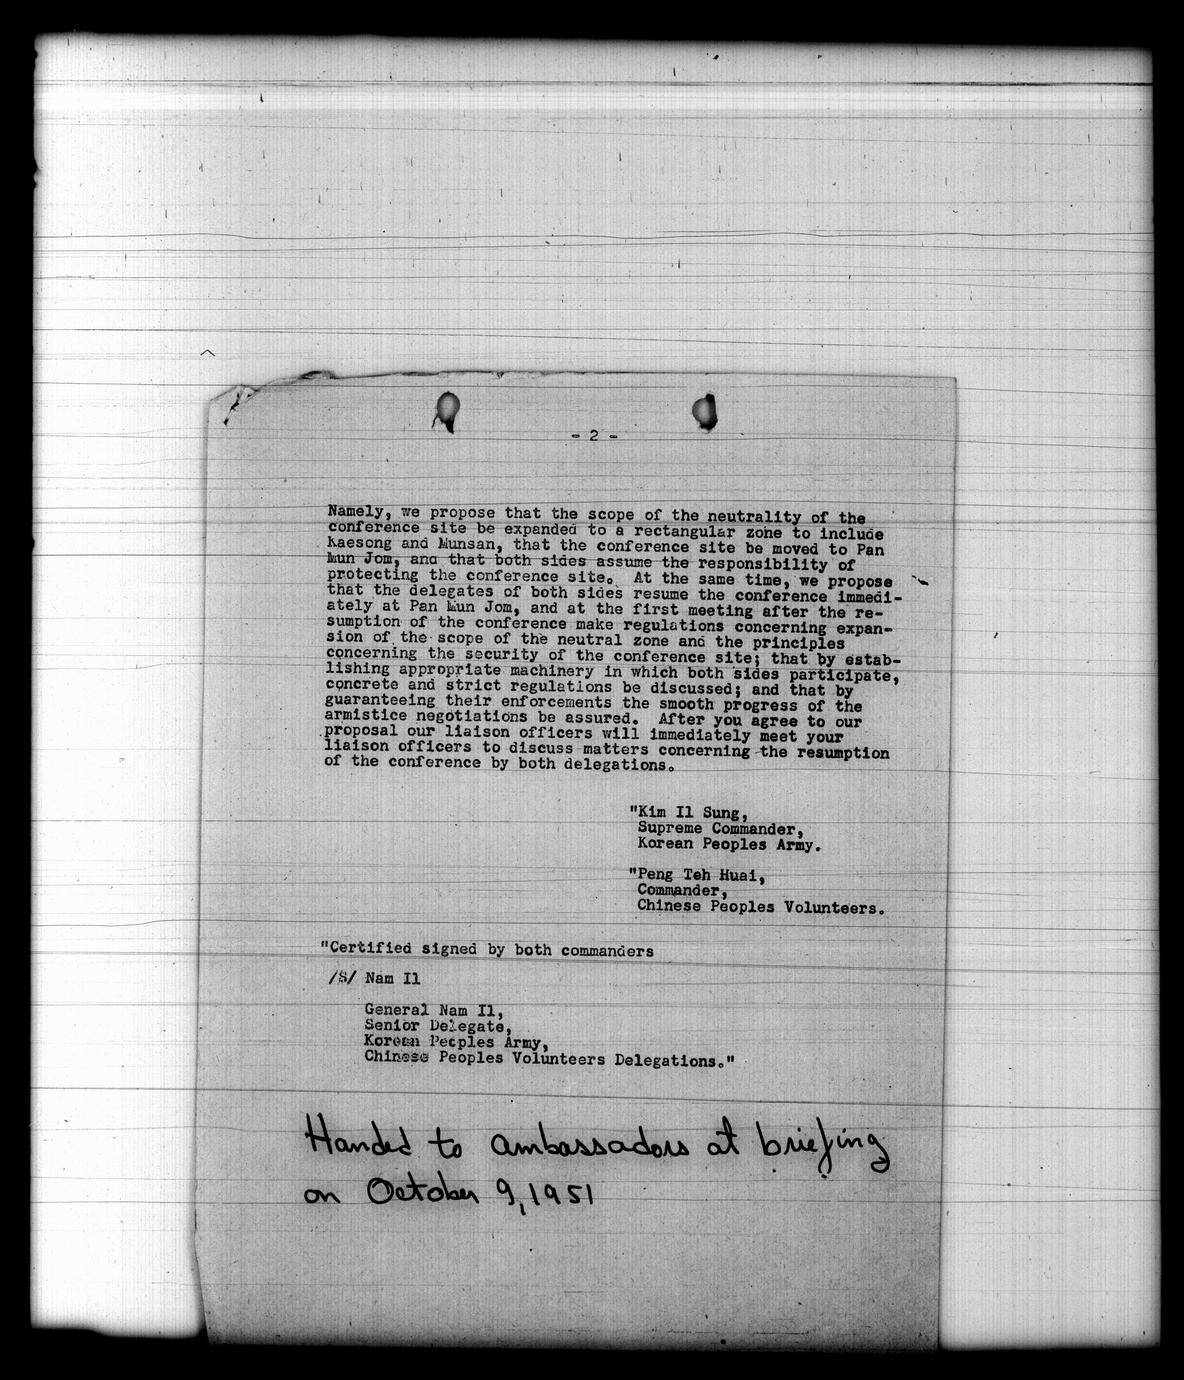 - 2 -
Namely, we propose that the scope of the neutrality of the
conference site be expanded to a rectangular zone to include
Kaesong and Munsan, that the conference site be moved to Pan
Mun Jom, and that both sides assume the responsibility of
protecting the conference site. At the same time, we propose
that the delegates of both sides resume the conference immedi-
ately at Pan Mun Jom, and at the first meeting after the re-
sumption of the conference make regulations concerning expan-
sion of the scope of the neutral zone and the principles
concerning the security of the conference site; that by estab-
lishing appropriate machinery in which both sides participate,
concrete and strict regulations be discussed; and that by
guaranteeing their enforcements the smooth progress of the
armistice negotiations be assured. After you agree to our
proposal our liaison officers will immediately meet your
liaison officers to discuss matters concerning the resumption
of the conference by both delegations.
"Kim Il Sung,
Supreme Commander,
Korean Peoples Army.
"Peng Teh Huai,
Commander,
Chinese Peoples Volunteers.
"Certified signed by both commanders
/S/ Nam Il
General Nam Il,
Senior Delegate,
Korean Peoples Army,
Chinese Peoples Volunteers Delegations."
Handed to ambassadors at briefing
on October 9, 1951